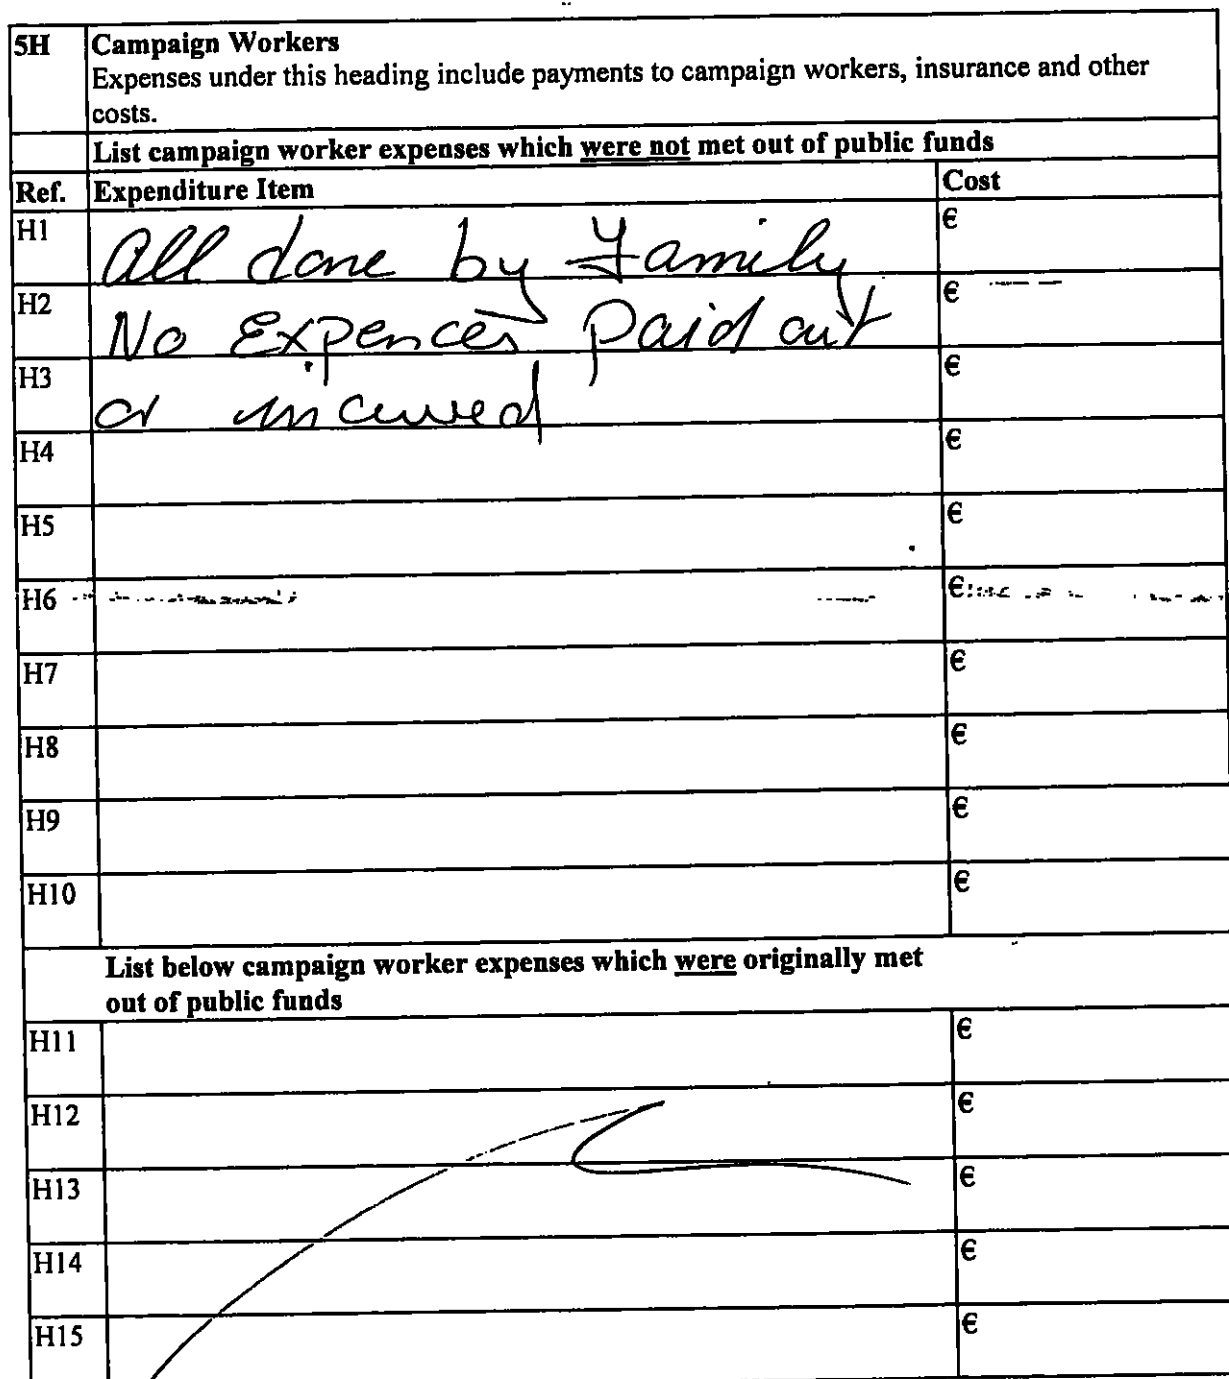 5H Campaign Workers
Expenses under this heading include payments to campaign workers, insurance and other
costs.
List campaign worker expenses which were not met out of public funds
Ref. Expenditure Item Cost
H1 All done by Family €
H2 No Expences Paid out €
H3 or incurred €
H4 €
H5 €
H6 €
H7 €
H8 €
H9 €
H10 €
List below campaign worker expenses which were originally met
out of public funds
H11 €
H12 €
H13 €
H14 €
H15 €